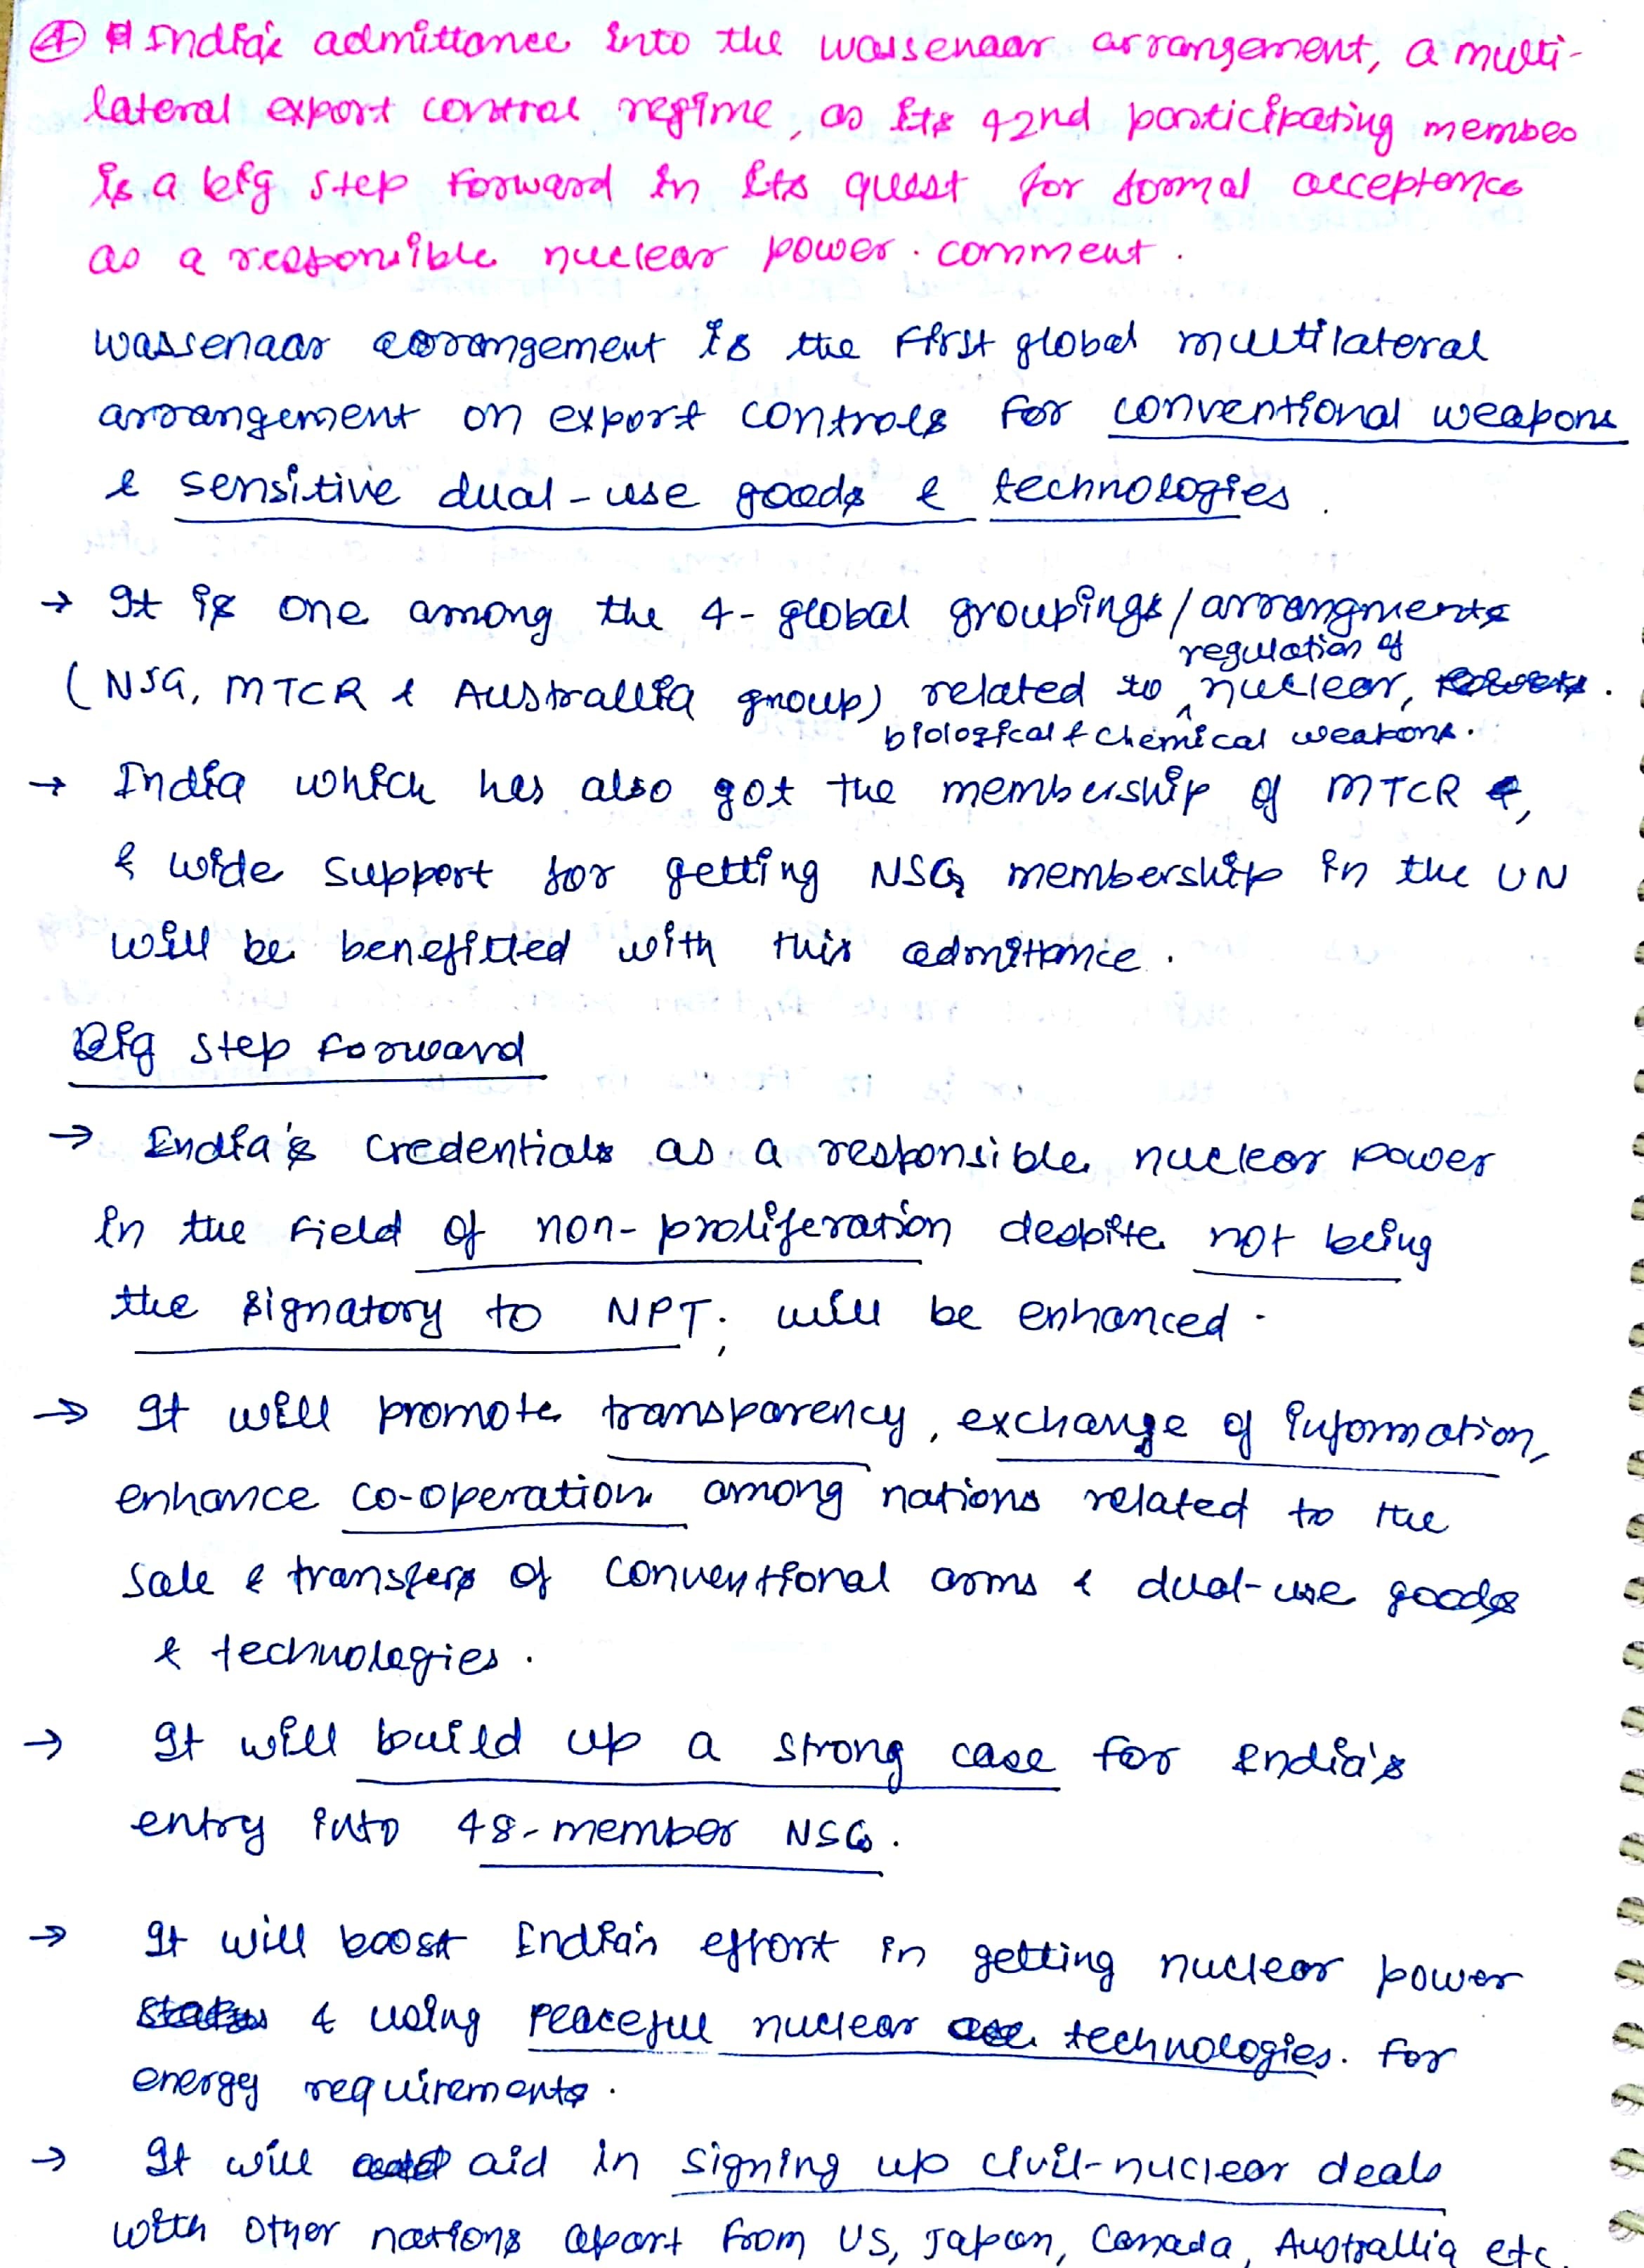 ④ India's admittance into the wassenaar arrangement, a multi-
lateral export control regime, as its 42nd participating member
is a big step forward in its quest for formal acceptance
as a responsible nuclear power. comment.
wassenaar arrangement is the first global multilateral
arrangement on export controls for conventional weapons
& sensitive dual-use goods & technologies.
→ It is one among the 4-global groupings/arrangments
regulation of
(NSG, MTCR & Australlia group) related to ^ nuclear,
biological & chemical weapons.
→ India which has also got the membership of MTCR,
& wide support for getting NSG membership in the UN
will be benefitted with this admittance.
Big step forward
→ India's credentials as a responsible nuclear power
in the field of non-proliferation despite not being
the signatory to NPT, will be enhanced.
→ It will promote transparency, exchange of information,
enhance co-operation among nations related to the
sale & transfers of conventional arms & dual-use goods
& technologies.
→ It will build up a strong case for India's
entry into 48-member NSG.
→ It will boost India's effort in getting nuclear power
status & using peaceful nuclear technologies. for
energy requirements.
→ It will aid in signing up civil-nuclear deals
with other nations apart from US, Japan, Canada, Australlia etc.